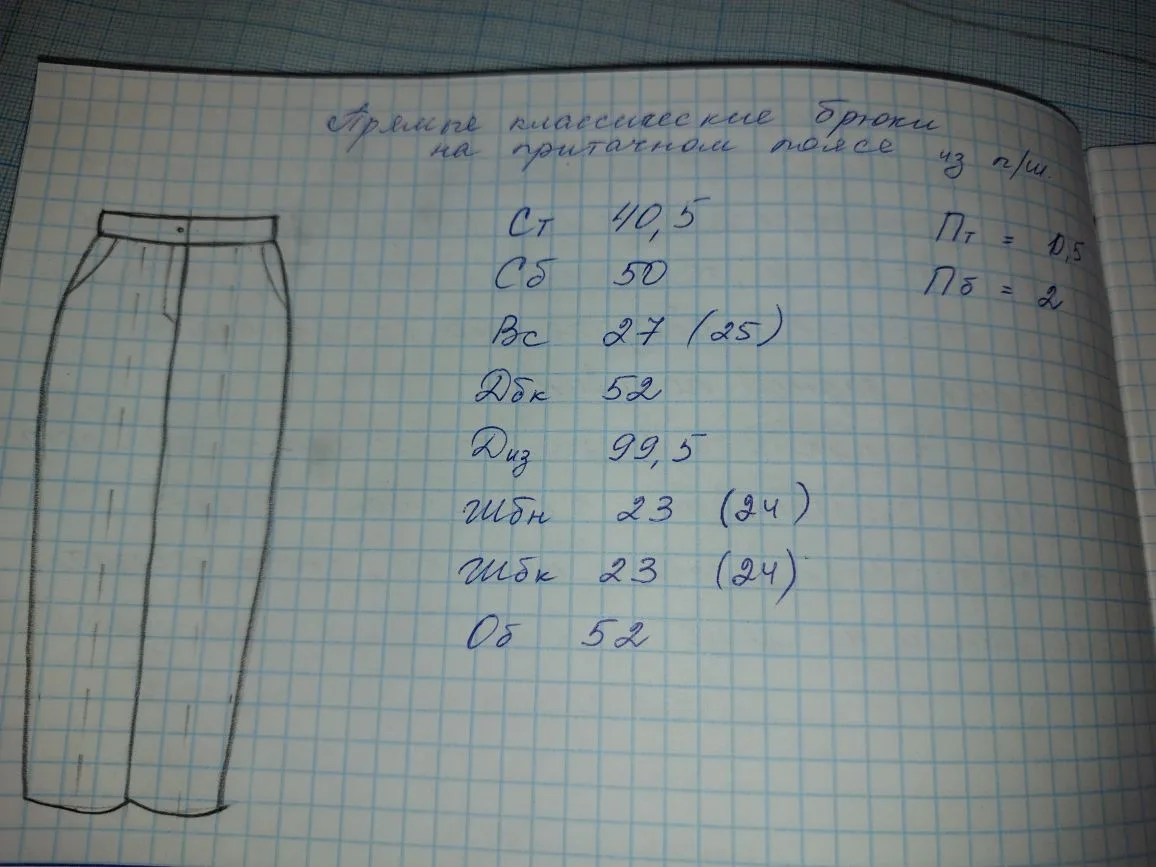 Прямые классические брюки
на притачном поясе из п/ш.
Ст 40,5
Пт = 0,5
Сб 50
Пб = 2
Вс 27 (25)
Дбк 52
Диз 99,5
Шбн 23 (24)
Шбк 23 (24)
Об 52